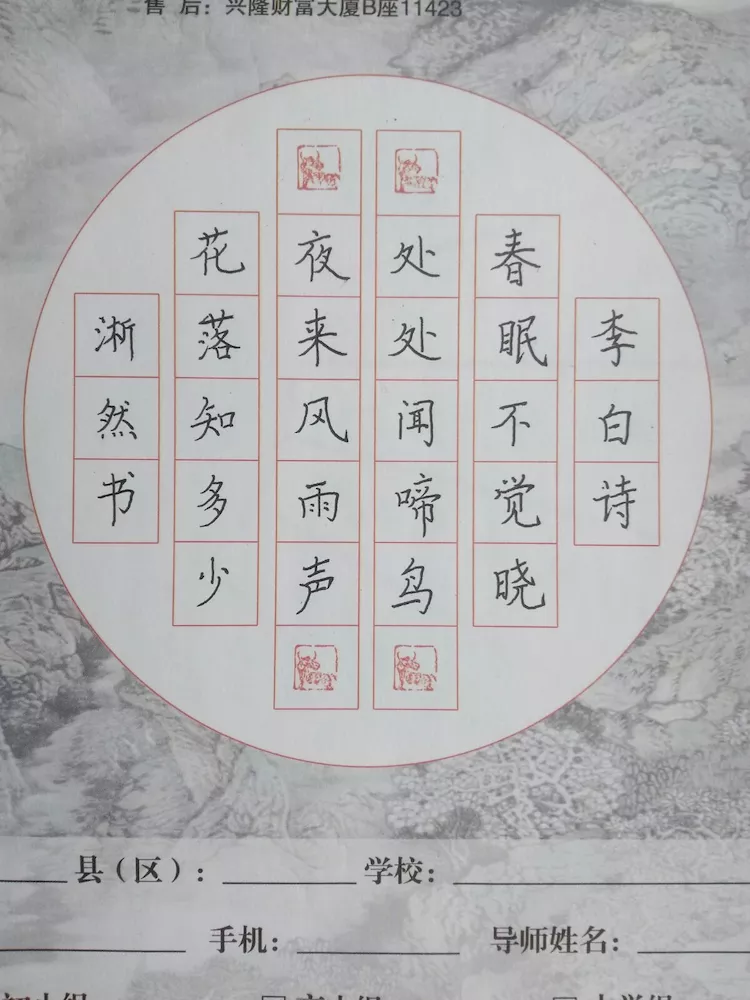 售 后：兴隆财富大厦B座11423
李白诗
春眠不觉晓
处处闻啼鸟
夜来风雨声
花落知多少
淅然书
县（区）：
学校：
手机：
导师姓名：